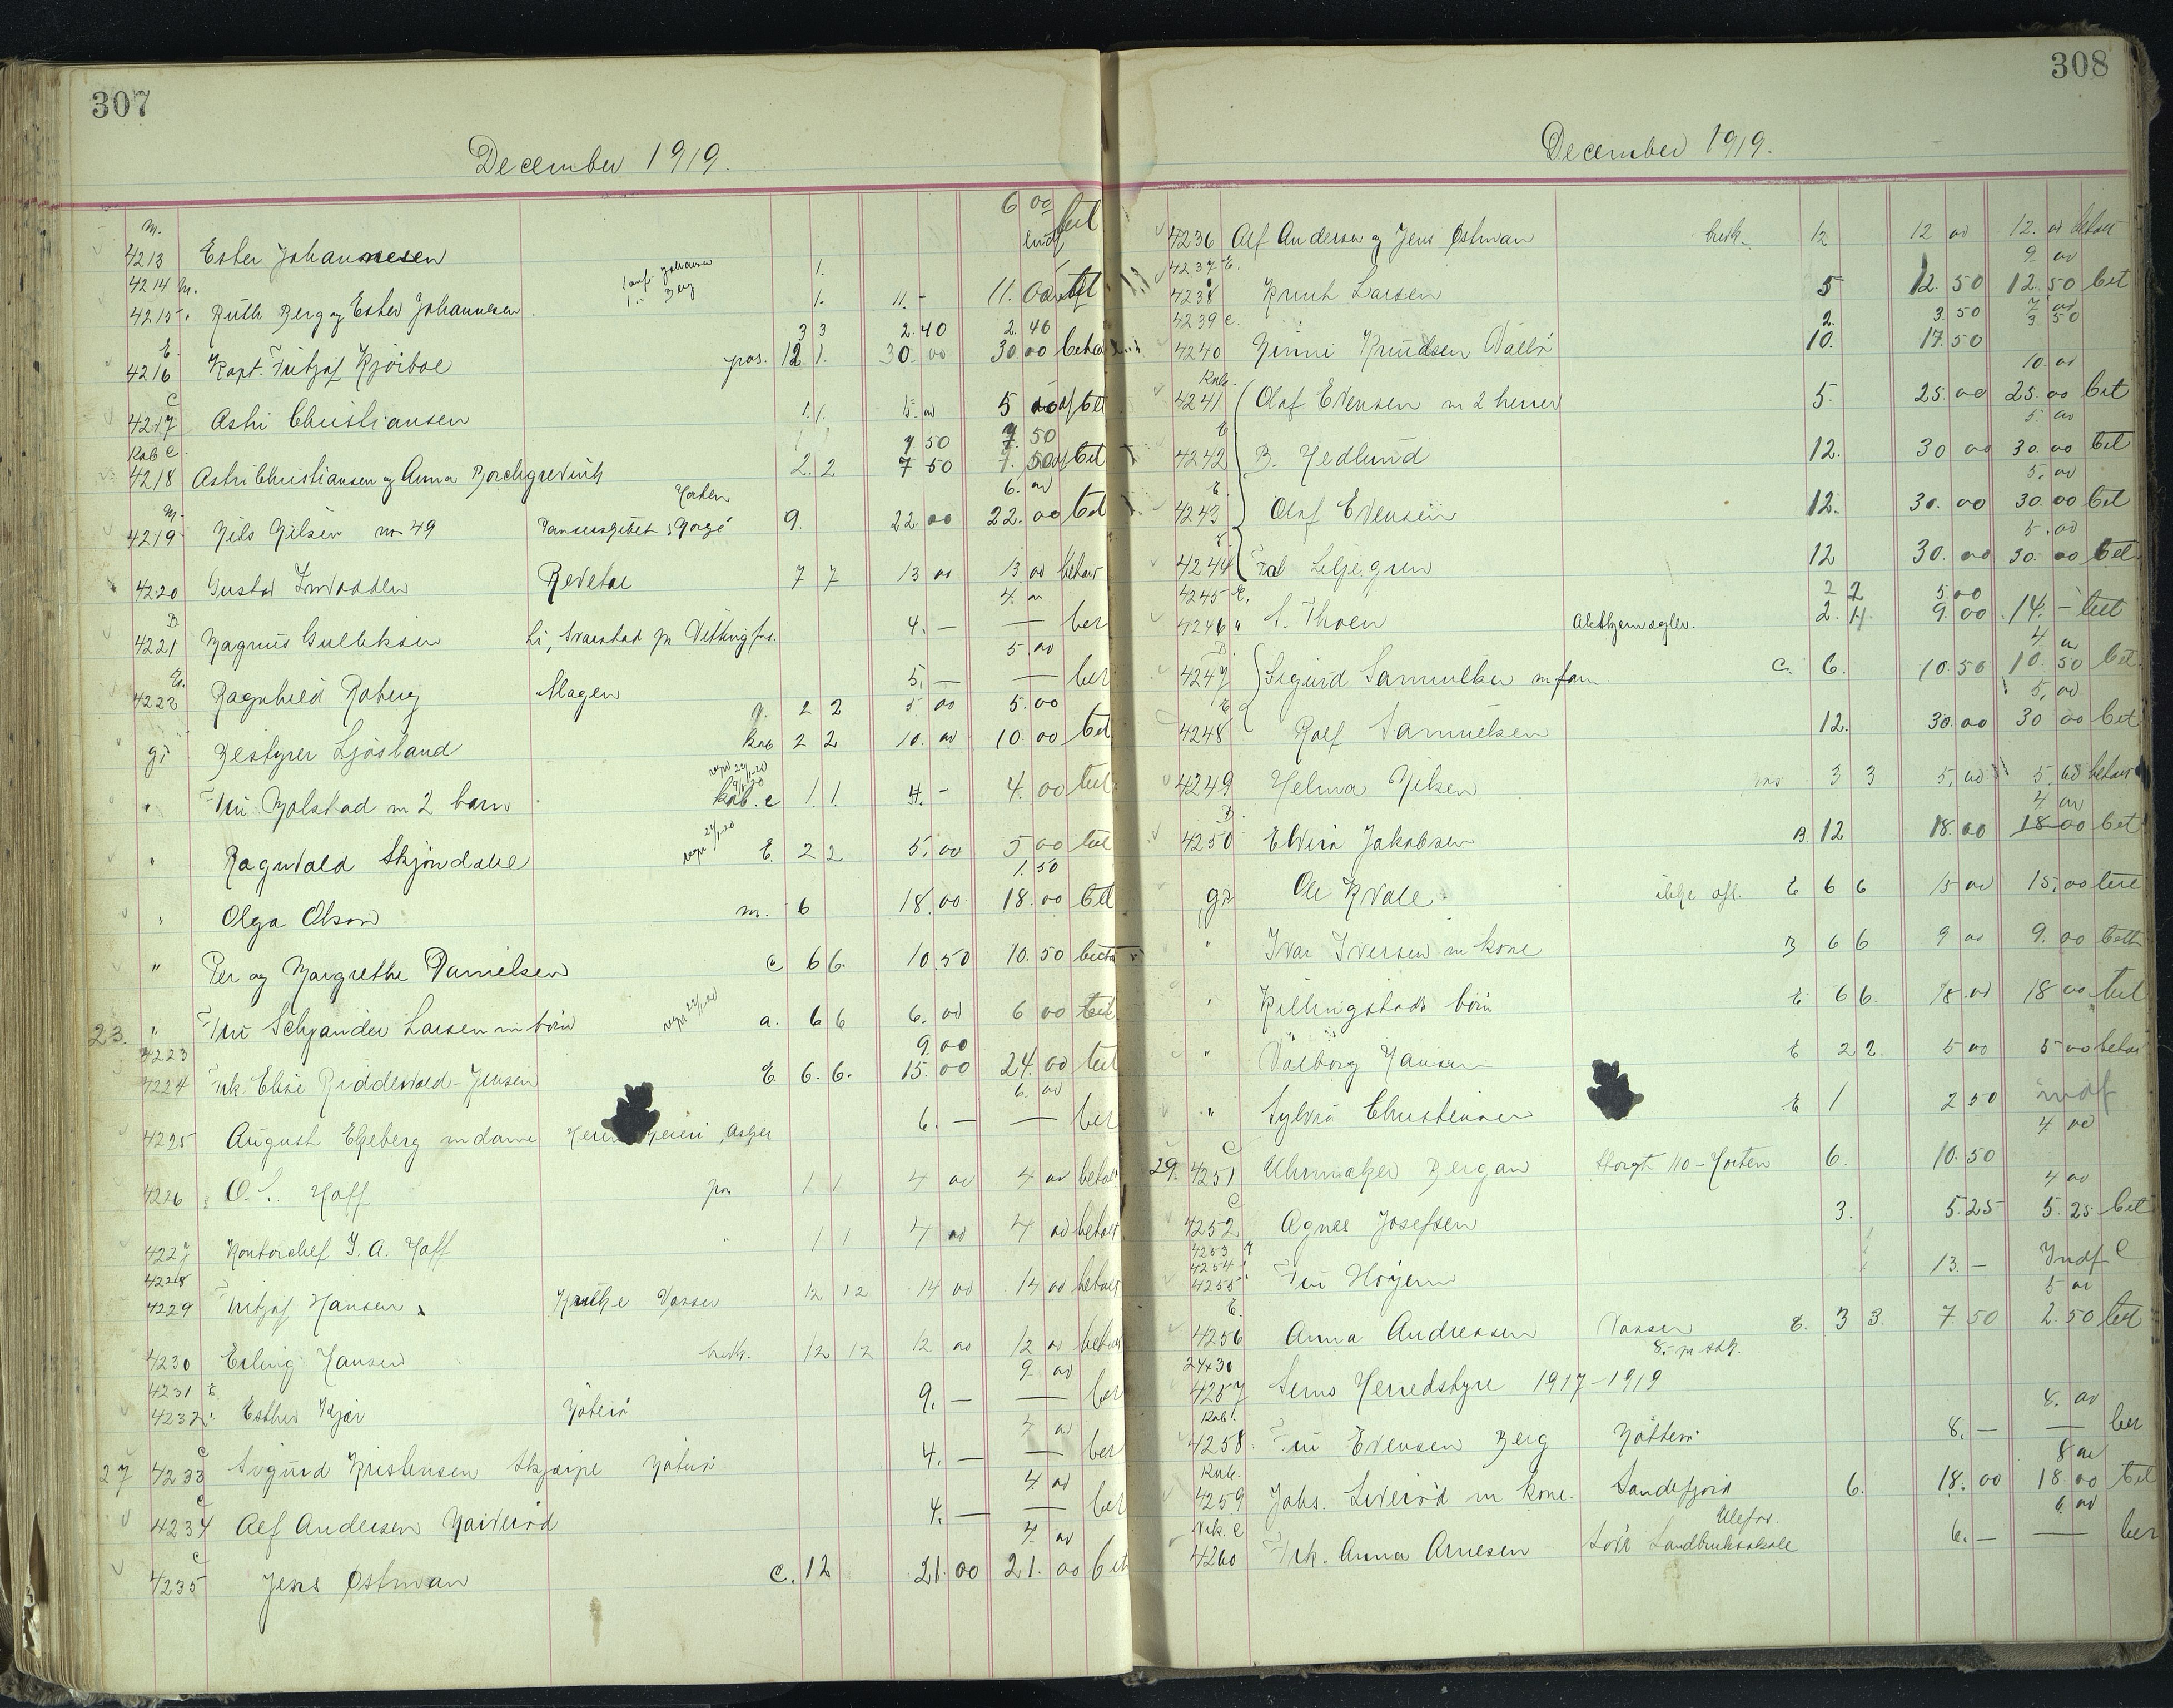 307
December 1919.
6 00
M. bet
4213 Ester Johannesen
4214 M. 1.
4215 Ruth Berg og Ester Johannesen 1. 11.- 11.00
3 3 2.40 2.40
E.
4216 Kapt. Kjörboe pas. 12 1. 30.00 30.00
C
4217 Astri Christiansen 1. 1. 5 bet
Kab C. 7 50 7. 50
4218 Astri Christiansen og Anna Borchgrevink 2. 2 7 50 7. bet
Horten 6.
M.
4219 Nils Nilsen no 49 9. 22.00 22.00 bet
4220 Gustav 7 7 13 00 13 00 betalt
B 4.
4221 Magnus Gulliksen 4.- — ber
5 00
E.
4222 Ragnhild Roberg Magen 5.- — ber
g. 2 2 5.00 5.00
gr Bestyrer Ljösland Kab 2 2 10.00 10.00 bet
" Fru Bolstad m 2 barn Kab. c 1. 1. 4.- 4.00 bet
" Ragnvald Skjöndahl E. 2 2 5.00 5 00 bet
1.50
" Olga Olsen m. 6 18.00 18.00 bet
" Per og Margrethe Danielsen C 6 6. 10.50 10.50
23. " Fru Schjander Larsen m börn a. 6 6 6.00 6 00 bet
4223 9.00
4224 Frk. Elise Riddervold-Jensen E. 6. 6. 15.00 24.00 bet
6.00
4225 August Ekeberg m dame Asker 6.- — ber
4226 O. L. Hoff pas 1 1 4 00 4 00 betalt
4227 Kontorchef J. A. Hoff " 1 1 4 00 4 00 betalt
4228
4229 Hansen 12 12 14 00 14 00 betalt
4230 Erling Hansen brevk. 12 12 12 00 12 00 betalt
9 00
4231 E.
4232 " Esther Kjær Nöterö 9.- — ber
4 00
C
27 4233 Sigurd Kristensen Skjærpe Nöterö 4.- — ber
4.00
C
4234 Alf Andersen 4.- — ber
4.00
C
4235 Jens Östman C. 12 21.00 21.00 bet
308
December 1919.
4236 Alf Andersen og Jens Östman brevk. 12 12 00 12.00 betalt
4237 E. 9.00
4238 Knut Larsen 5 12.50 12.50 bet
4239 C. 2. 3.50 3 50
4240 Ninni Knudsen Vallö 10. 17.50
10.00
Kab.
4241 Olaf Evensen m 2 herrer 5. 25.00 25.00 bet
5.00
E
4242 B. Hedlund 12. 30 00 30.00 bet
5.00
E.
4243 Olaf Evensen 12. 30.00 30.00 bet
5.00
E.
4244 Liljegren 12 30.00 30.00 bet
4245 E. 2 2 5.00
4246 " S. Thoen 2. 4. 9.00 14.- bet
4.00
B.
4247 Sigurd Samuelsen m fam. C. 6. 10.50 10.50 bet
5.00
E
4248 Rolf Samuelsen 12. 30.00 30 00 bet
4249 Helma Nilsen pas 3 3 5.00 5.00 betalt
4 00
B.
4250 Elvira Jakobsen B. 12 18.00 18.00 bet
gr Ole Kvale ikke afl. E 6 6 15 00 15.00 bet
" Ivar Iversen m kone B 6 6 9 00 9.00
" Killingstads börn E 6 6. 18.00 18 00 bet
" Valborg Hansen E 2 2. 5 00 5 00 betalt
" Sylvia Christensen E 1 2 50 indf
4 00
C
29. 4251 Uhrmaker Bergan Storgt 110 - Horten 6. 10.50
4 00
C
4252 Agnes Josefsen 3. 5.25 5.25 bet
4253
4254
4255 Fru Höyem 13.- Indf C
5 00
E.
4256 Anna Andresen E. 3 3. 7.50 2.50 bet
8.- pr stk.
24x30
4257 Sems Herredstyre 1917-1919
8.00
Kab.
4258. Fru Evensen Berg Nötterö 8.- — ber
8 00
Kab.
4259 Johs. Liveröd m kone. Sandefjord 6. 18.00 18.00 bet
6.00
Ulefos.
Vk. C
4260 Frk. Anna Arnesen Söve Landbruksskole 6.- — ber